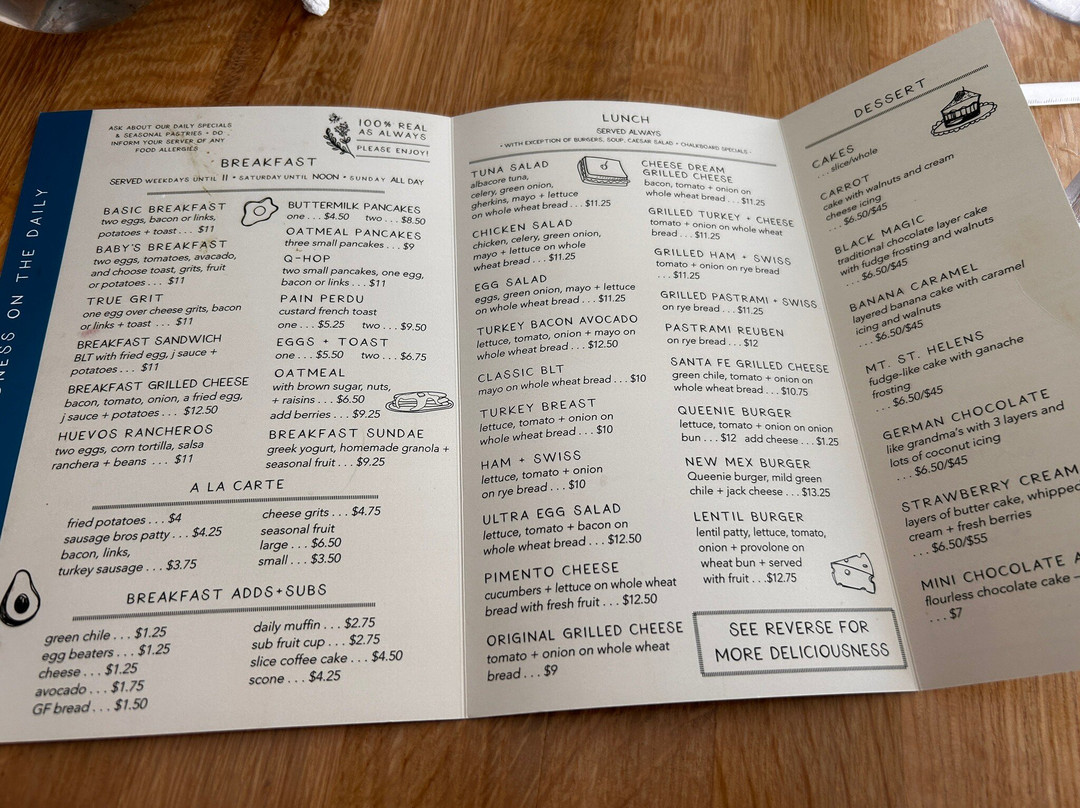 NESS ON THE DAILY
ASK ABOUT OUR DAILY SPECIALS
& SEASONAL PASTRIES • DO
INFORM YOUR SERVER OF ANY
FOOD ALLERGIES
100% REAL
AS ALWAYS
PLEASE ENJOY!
BREAKFAST
SERVED WEEKDAYS UNTIL 11 • SATURDAY UNTIL NOON • SUNDAY ALL DAY
BASIC BREAKFAST
two eggs, bacon or links,
potatoes + toast . . . $11
BABY'S BREAKFAST
two eggs, tomatoes, avocado,
and choose toast, grits, fruit
or potatoes . . . $11
TRUE GRIT
one egg over cheese grits, bacon
or links + toast . . . $11
BREAKFAST SANDWICH
BLT with fried egg, j sauce +
potatoes . . . $11
BREAKFAST GRILLED CHEESE
bacon, tomato, onion, a fried egg,
j sauce + potatoes . . . $12.50
HUEVOS RANCHEROS
two eggs, corn tortilla, salsa
ranchera + beans . . . $11
BUTTERMILK PANCAKES
one . . . $4.50 two . . . $8.50
OATMEAL PANCAKES
three small pancakes . . . $9
Q-HOP
two small pancakes, one egg,
bacon or links . . . $11
PAIN PERDU
custard french toast
one . . . $5.25 two . . . $9.50
EGGS + TOAST
one . . . $5.50 two . . . $6.75
OATMEAL
with brown sugar, nuts,
+ raisins . . . $6.50
add berries . . . $9.25
BREAKFAST SUNDAE
greek yogurt, homemade granola +
seasonal fruit . . . $9.25
A LA CARTE
fried potatoes . . . $4
sausage bros patty . . . $4.25
bacon, links,
turkey sausage . . . $3.75
cheese grits . . . $4.75
seasonal fruit
large . . . $6.50
small . . . $3.50
BREAKFAST ADDS+SUBS
green chile . . . $1.25
egg beaters . . . $1.25
cheese . . . $1.25
avocado . . . $1.75
GF bread . . . $1.50
daily muffin . . . $2.75
sub fruit cup . . . $2.75
slice coffee cake . . . $4.50
scone . . . $4.25
LUNCH
SERVED ALWAYS
• WITH EXCEPTION OF BURGERS, SOUP, CAESAR SALAD + CHALKBOARD SPECIALS •
TUNA SALAD
albacore tuna,
celery, green onion,
gherkins, mayo + lettuce
on whole wheat bread . . . $11.25
CHICKEN SALAD
chicken, celery, green onion,
mayo + lettuce on whole
wheat bread . . . $11.25
EGG SALAD
eggs, green onion, mayo + lettuce
on whole wheat bread . . . $11.25
TURKEY BACON AVOCADO
lettuce, tomato, onion + mayo on
whole wheat bread . . . $12.50
CLASSIC BLT
mayo on whole wheat bread . . . $10
TURKEY BREAST
lettuce, tomato + onion on
whole wheat bread . . . $10
HAM + SWISS
lettuce, tomato + onion
on rye bread . . . $10
ULTRA EGG SALAD
lettuce, tomato + bacon on
whole wheat bread . . . $12.50
PIMENTO CHEESE
cucumbers + lettuce on whole wheat
bread with fresh fruit . . . $12.50
ORIGINAL GRILLED CHEESE
tomato + onion on whole wheat
bread . . . $9
CHEESE DREAM
GRILLED CHEESE
bacon, tomato + onion on
whole wheat bread . . . $11.25
GRILLED TURKEY + CHEESE
tomato + onion on whole wheat
bread . . . $11.25
GRILLED HAM + SWISS
tomato + onion on rye bread
. . . $11.25
GRILLED PASTRAMI + SWISS
on rye bread . . . $11.25
PASTRAMI REUBEN
on rye bread . . . $12
SANTA FE GRILLED CHEESE
green chile, tomato + onion on
whole wheat bread . . . $10.75
QUEENIE BURGER
lettuce, tomato + onion on onion
bun . . . $12 add cheese . . . $1.25
NEW MEX BURGER
Queenie burger, mild green
chile + jack cheese . . . $13.25
LENTIL BURGER
lentil patty, lettuce, tomato,
onion + provolone on
wheat bun + served
with fruit . . . $12.75
SEE REVERSE FOR
MORE DELICIOUSNESS
DESSERT
CAKES
. . . slice/whole
CARROT
cake with walnuts and cream
cheese icing
. . . $6.50/$45
BLACK MAGIC
traditional chocolate layer cake
with fudge frosting and walnuts
. . . $6.50/$45
BANANA CARAMEL
layered banana cake with caramel
icing and walnuts
. . . $6.50/$45
MT. ST. HELENS
fudge-like cake with ganache
frosting
. . . $6.50/$45
GERMAN CHOCOLATE
like grandma's with 3 layers and
lots of coconut icing
. . . $6.50/$45
STRAWBERRY CREAM
layers of butter cake, whipped
cream + fresh berries
. . . $6.50/$55
MINI CHOCOLATE
flourless chocolate cake –
. . . $7